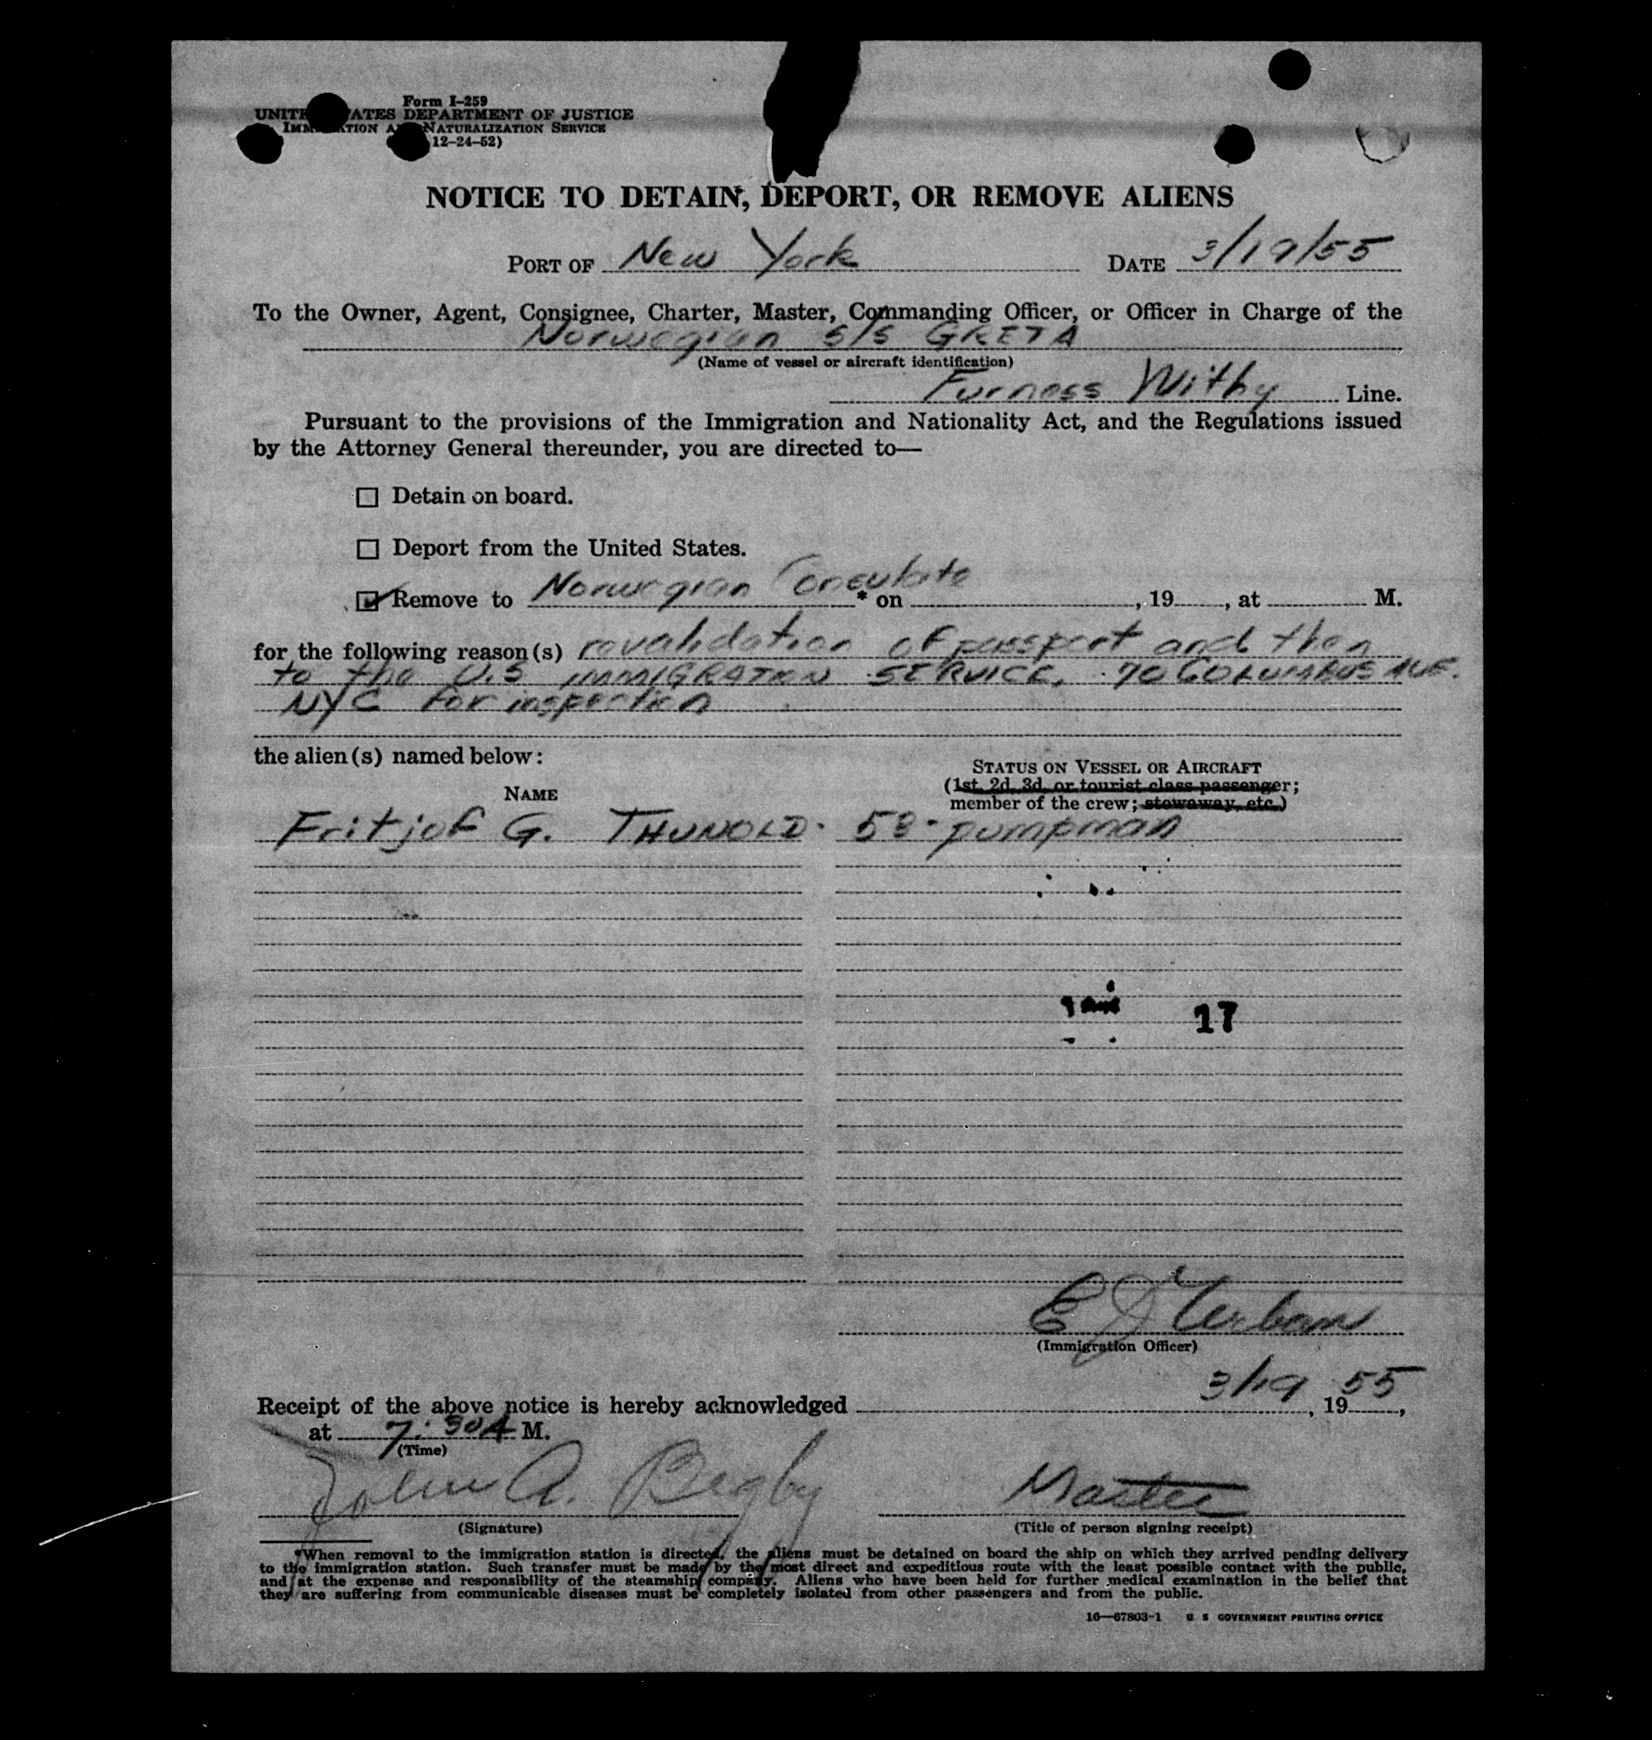 Form I-259
UNITED STATES DEPARTMENT OF JUSTICE
IMMIGRATION AND NATURALIZATION SERVICE
12-24-52)
NOTICE TO DETAIN, DEPORT, OR REMOVE ALIENS
PORT OF New York DATE 3/19/55
To the Owner, Agent, Consignee, Charter, Master, Commanding Officer, or Officer in Charge of the
Norwegian S/S GRETA
(Name of vessel or aircraft identification)
Furness Withy Line.
Pursuant to the provisions of the Immigration and Nationality Act, and the Regulations issued
by the Attorney General thereunder, you are directed to—
Detain on board.
Deport from the United States.
Remove to Norwegian Consulate * on , 19 , at M.
for the following reason(s) revalidation of passport and then
to the U.S IMMIGRATION SERVICE, 70 COLUMBUS AVE.
NYC for inspection
the alien(s) named below:
STATUS ON VESSEL OR AIRCRAFT
(1st, 2d, 3d, or tourist class passenger;
NAME
member of the crew; stowaway, etc.)
Fritjof G. THUNOLD. 58- pumpman
17
E J Urban
(Immigration Officer)
Receipt of the above notice is hereby acknowledged 3/19, 1955,
at 7:30A M.
(Time)
John A. Begby Master
(Signature) (Title of person signing receipt)
*When removal to the immigration station is directed, the aliens must be detained on board the ship on which they arrived pending delivery
to the immigration station. Such transfer must be made by the most direct and expeditious route with the least possible contact with the public,
and at the expense and responsibility of the steamship company. Aliens who have been held for further medical examination in the belief that
they are suffering from communicable diseases must be completely isolated from other passengers and from the public.
16—67803-1 U S GOVERNMENT PRINTING OFFICE